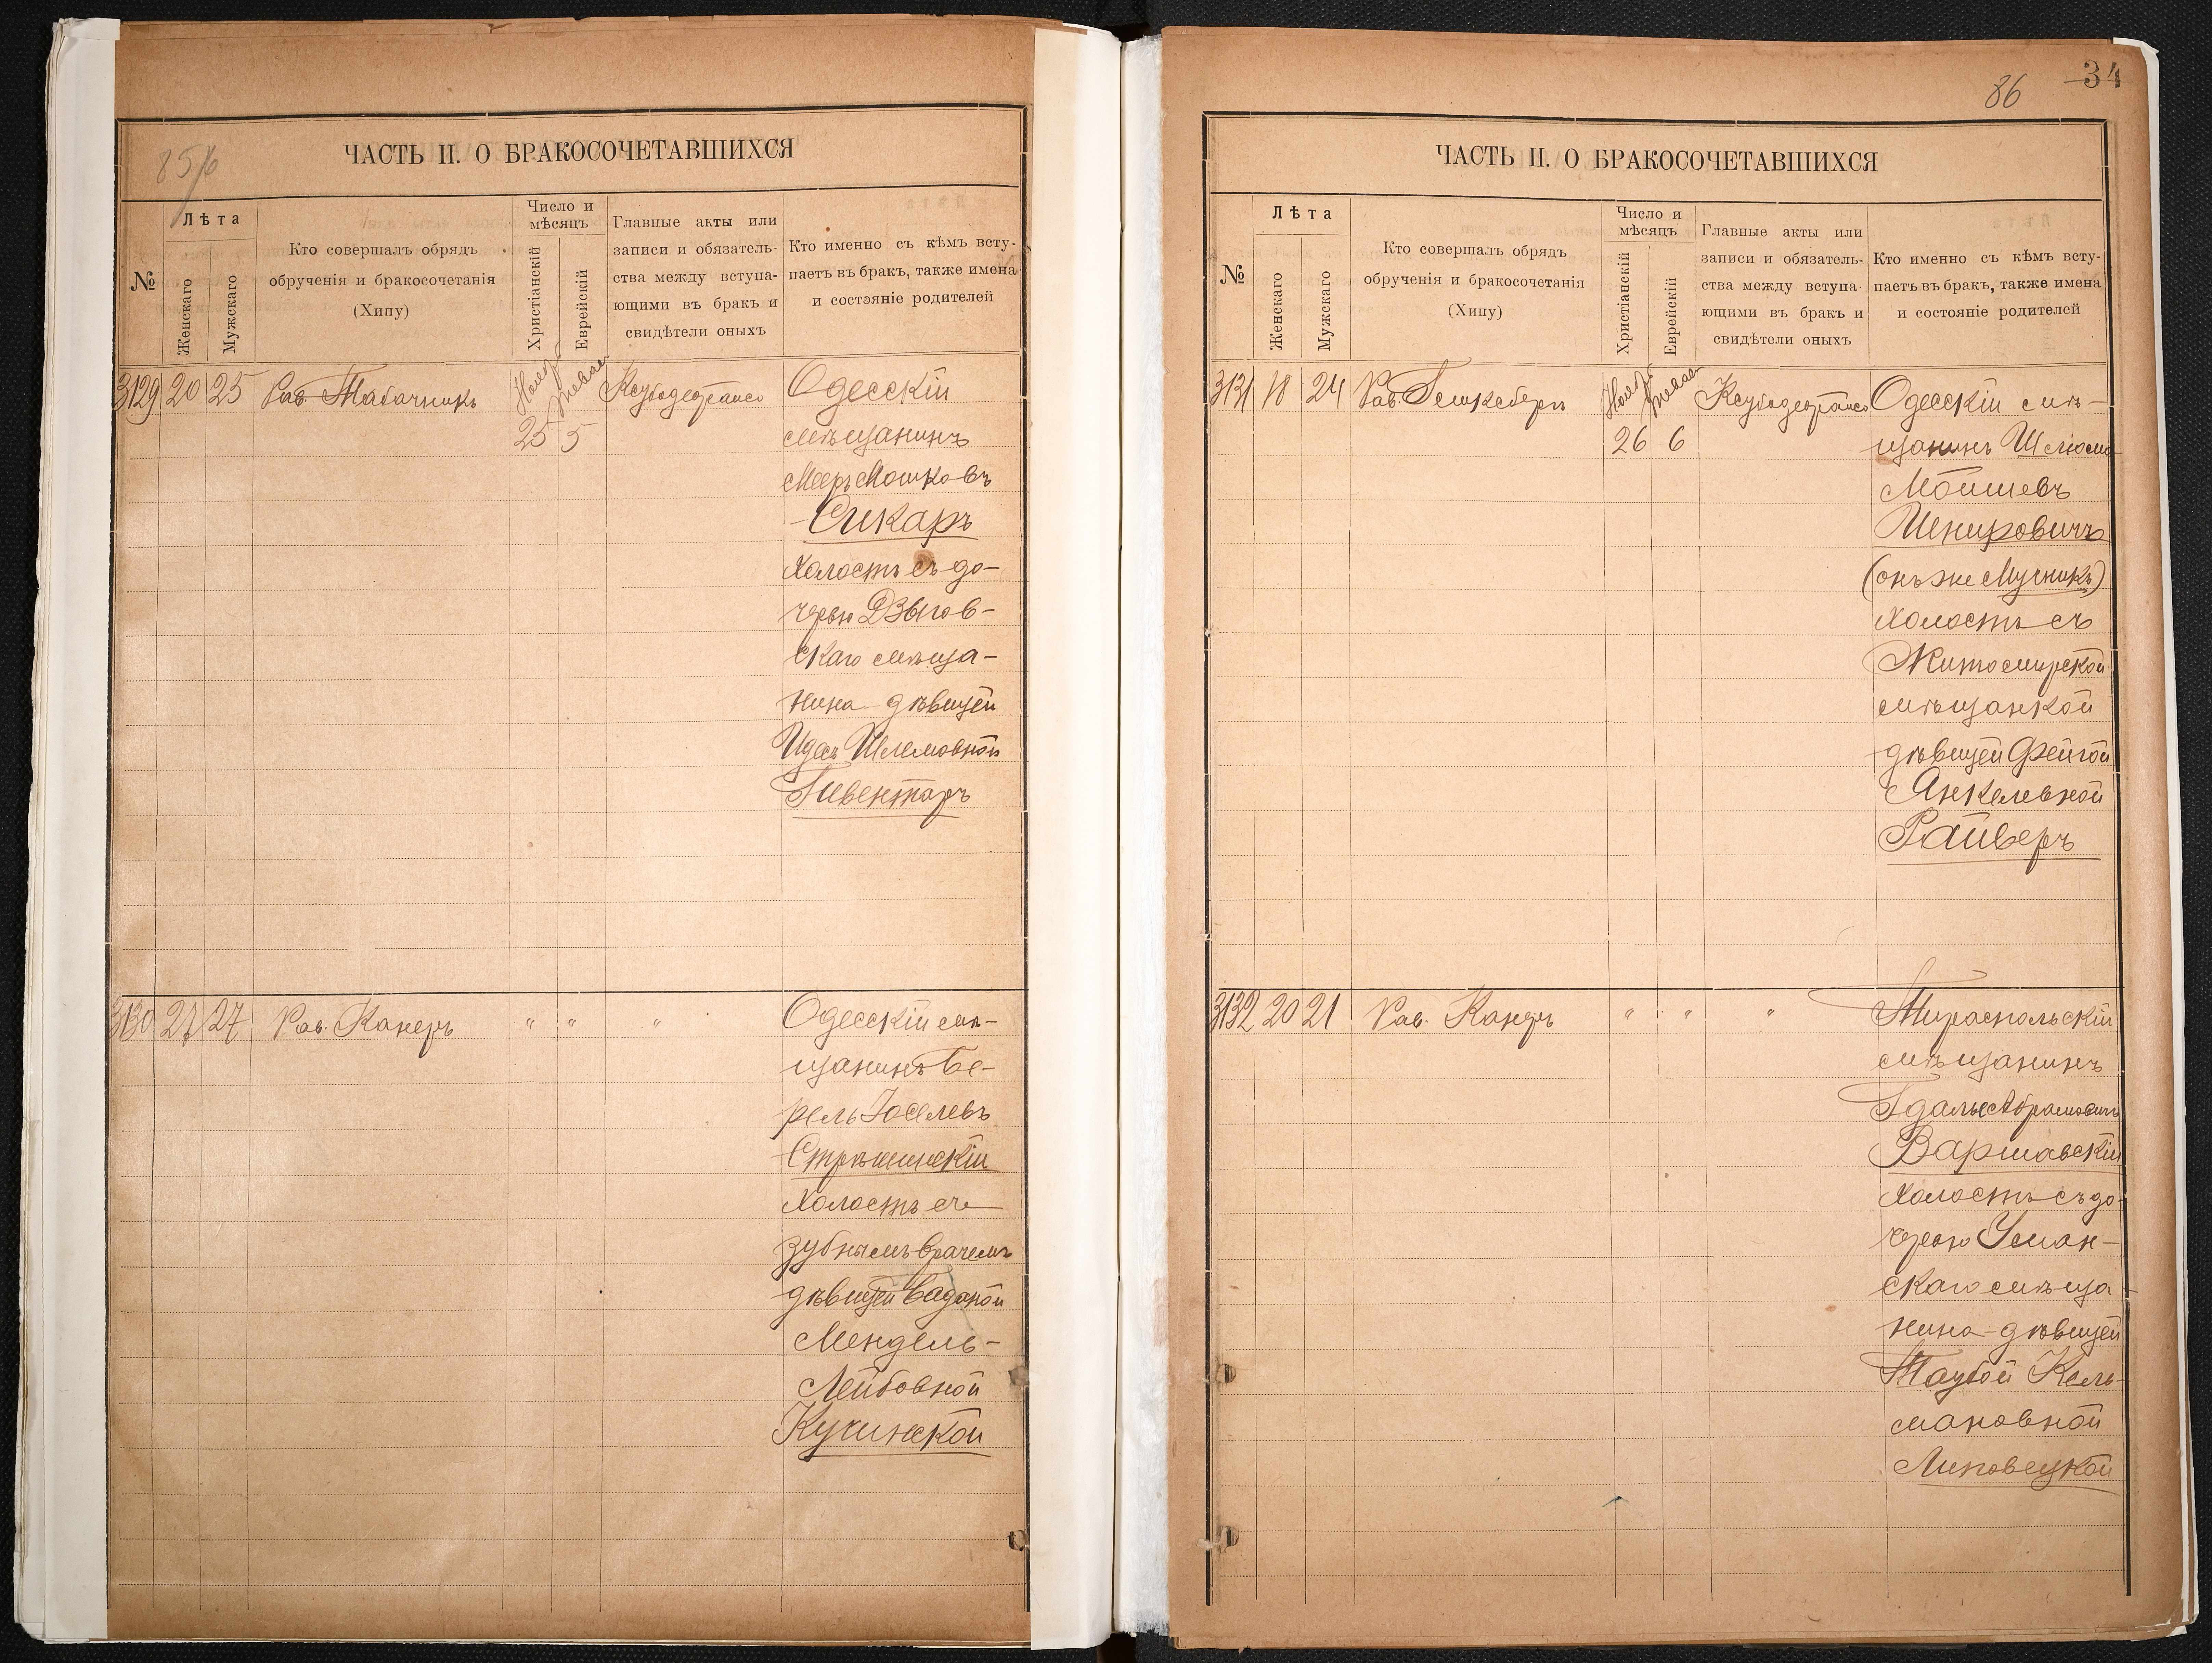 85/б
ЧАСТЬ II. О БРАКОСОЧЕТАВШИХСЯ
№
Лѣта
Женскаго
Мужскаго
Кто совершалъ обрядъ
обрученія и бракосочетанія
(Хипу)
Число и
мѣсяцъ
Христіанскій
Еврейскій
Главные акты или
записи и обязатель-
ства между вступа-
ющими въ бракъ и
свидѣтели оныхъ
Кто именно съ кѣмъ всту-
паетъ въ бракъ, также имена
и состояніе родителей
3129 20 25 Рав. Табачникъ
25 5
Одесскій
мѣщанинъ
Мееръ Мошковъ
Сикаръ
холостъ съ до-
черью Дзыгов-
скаго мѣща-
нина дѣвицей
Идесъ Шлемовной
Гивентаръ
3130 27 27 Рав. Канеръ " " "
Одесскій мѣ-
щанинъ Бе-
рель Іоселевъ
холостъ съ
зубнымъ врачемъ
дѣвицей Баданой
Мендель-
Лейбовной
Кучинской
86 34
ЧАСТЬ II. О БРАКОСОЧЕТАВШИХСЯ
№
Лѣта
Женскаго
Мужскаго
Кто совершалъ обрядъ
обрученія и бракосочетанія
(Хипу)
Число и
мѣсяцъ
Христіанскій
Еврейскій
Главные акты или
записи и обязатель-
ства между вступа-
ющими въ бракъ и
свидѣтели оныхъ
Кто именно съ кѣмъ всту-
паетъ въ бракъ, также имена
и состояніе родителей
3131 18 24 Рав.
26 6
Одесскій мѣ-
щанинъ Шлюма
Мойшевъ
Шнировичъ
(онъ же Мучникъ)
холостъ съ
Житомирской
мѣщанкой
дѣвицей Фейгой
Янкелевной
Райверъ
3132 20 21 Рав. Канеръ " " "
Тираспольскій
мѣщанинъ
Гдалье Абрамовичъ
Варшавскій
холостъ съ до-
черью Уман-
скаго мѣща-
нина дѣвицей
Таубой Кель-
мановной
Липовецкой